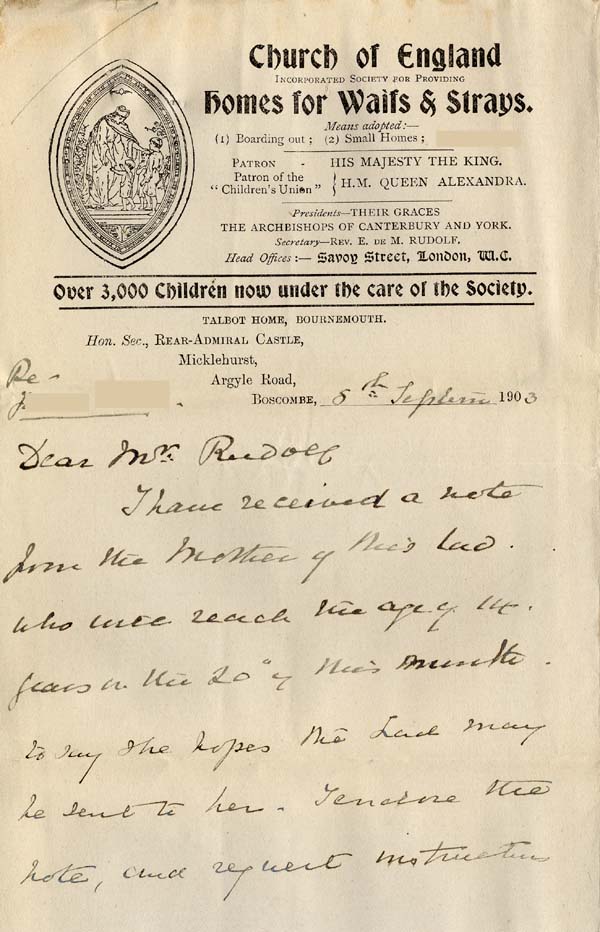 Church of England
Incorporated Society for Providing
Homes for Waifs & Strays.
Means adopted:—
(1) Boarding out; (2) Small Homes;
Patron - HIS MAJESTY THE KING.
Patron of the "Children's Union" } H.M. QUEEN ALEXANDRA.
Presidents—THEIR GRACES
THE ARCHBISHOPS OF CANTERBURY AND YORK.
Secretary—Rev. E. de M. Rudolf.
Head Offices:— Savoy Street, London, W.C.
Over 3,000 Children now under the care of the Society.
TALBOT HOME, BOURNEMOUTH.
Hon. Sec., Rear-Admiral Castle,
Micklehurst,
Argyle Road,
Re-
J
Boscombe, 8th Septem 1903
Dear Mr. Rudolf
I have received a note
from the Mother of this Lad.
who will reach the age of 14.
years on the 20" of this month.
to say she hopes the Lad may
be sent to her. I enclose the
note, and request instructions